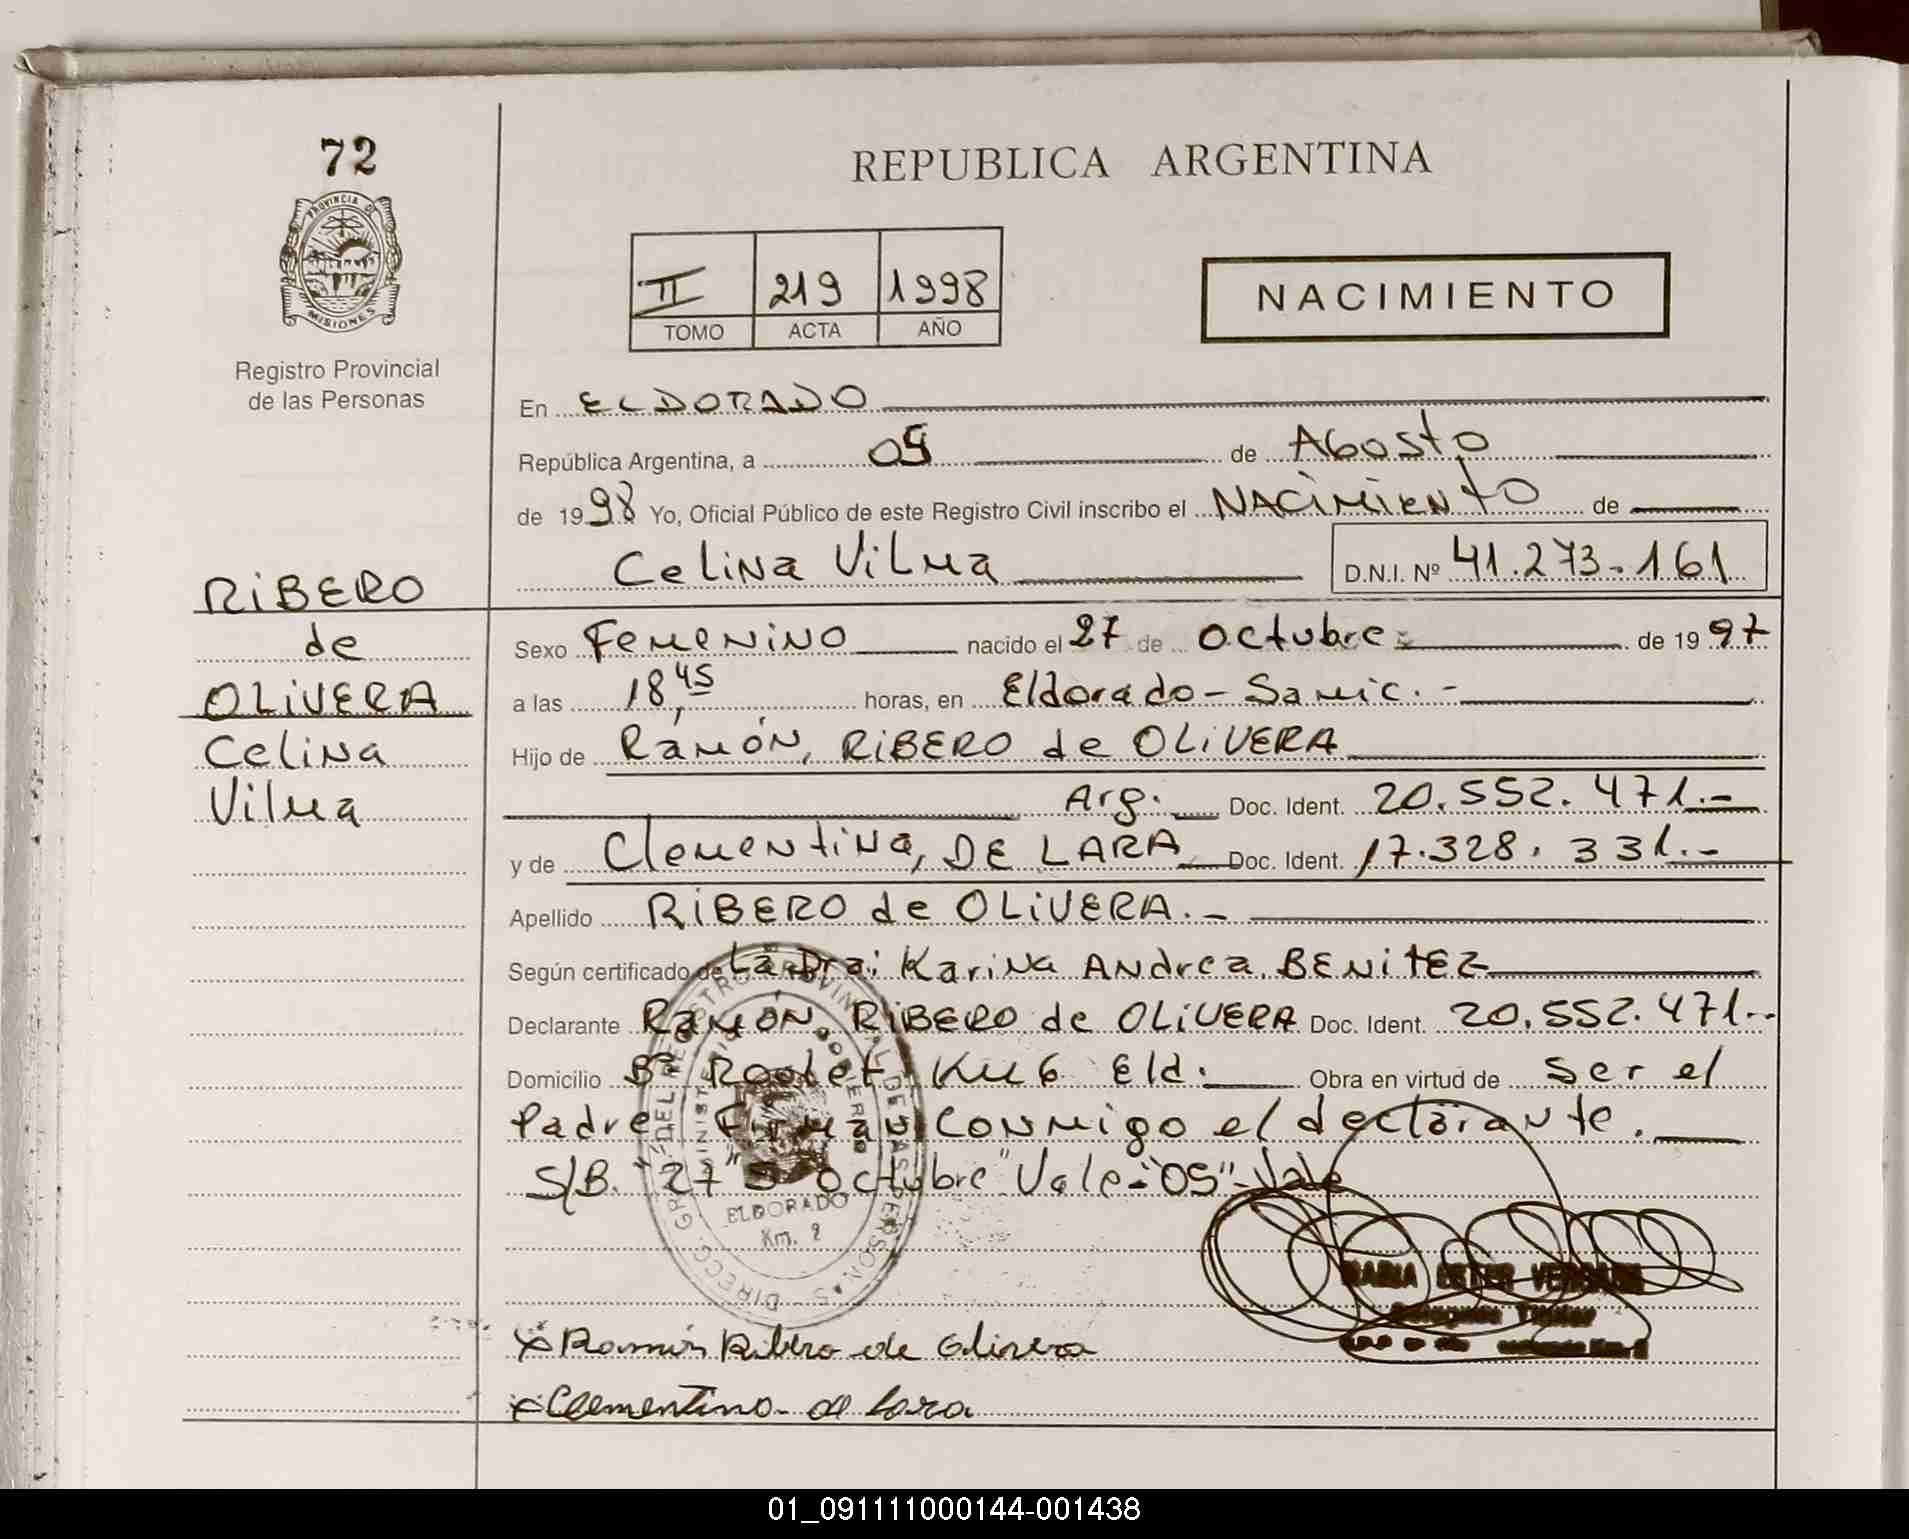 72
PROVINCIA DE
MISIONES
Registro Provincial
de las Personas
REPUBLICA ARGENTINA
II 219 1998
TOMO ACTA AÑO
NACIMIENTO
En ELDORADO
República Argentina, a 05 de Agosto
de 1998 Yo, Oficial Público de este Registro Civil inscribo el NACIMIENTO de
Celina Vilma D.N.I. Nº 41.273.161
RIBERO
de
OLIVERA
Celina
Vilma
Sexo Femenino nacido el 27 de Octubre de 1997
a las 18,45 horas, en Eldorado - Samic.-
Hijo de Ramón, RIBERO de OLIVERA
Arg. Doc. Ident. 20.552.471.-
y de Clementina, DE LARA Doc. Ident. 17.328.331.-
Apellido RIBERO de OLIVERA.-
Según certificado de La Dra: Karina Andrea BENITEZ
Declarante Ramón, RIBERO de OLIVERA Doc. Ident. 20.552.471.-
Domicilio Bº Km 6 Eld. Obra en virtud de Ser el
Padre Firman conmigo el declarante.
S/B. "27" Octubre" Vale-"05"-Vale
DIRECC. GRAL. DEL REGISTRO PROVINCIAL DE LAS PERSONAS
MINISTERIO DE GOBIERNO
ELDORADO
Km. 2
Ramón Ribero de Olivera
Clementina de Lara
01_091111000144-001438